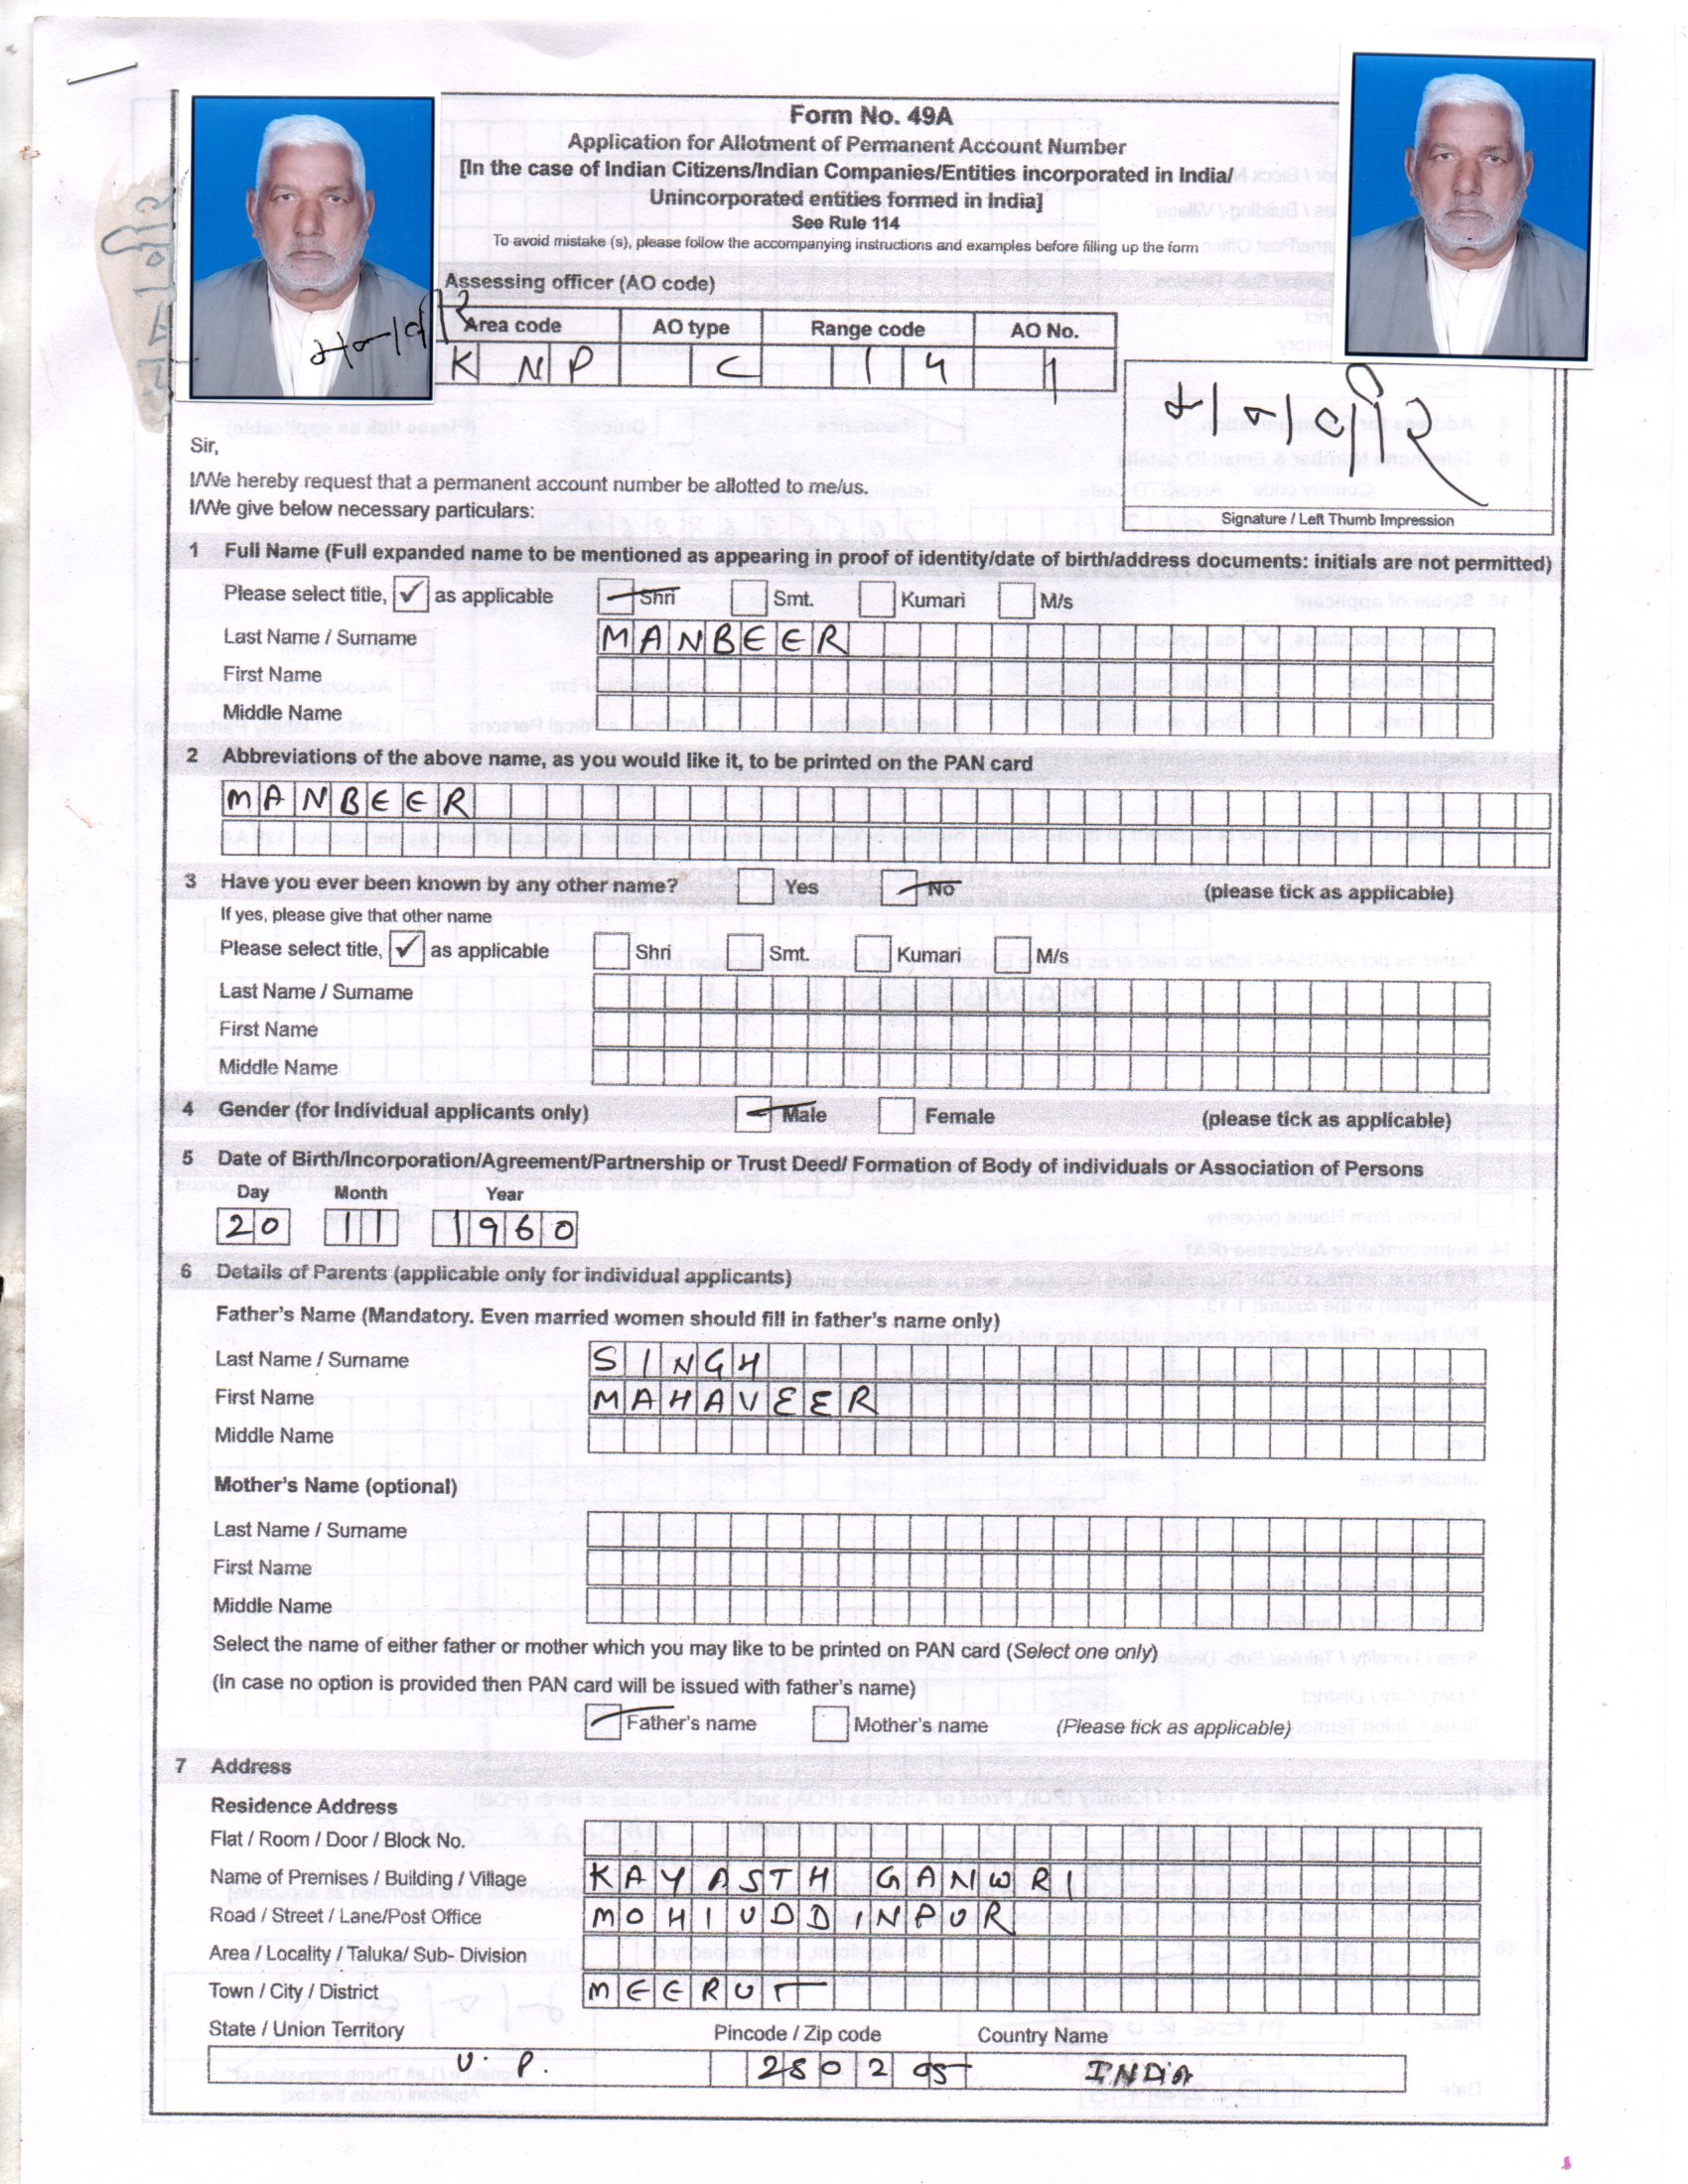 Form No. 49A
Application for Allotment of Permanent Account Number
[In the case of Indian Citizens/Indian Companies/Entities incorporated in India/
Unincorporated entities formed in India]
See Rule 114
To avoid mistake (s), please follow the accompanying instructions and examples before filling up the form
Assessing officer (AO code)
Area code AO type Range code AO No.
KNP C 14 1
Sir,
I/We hereby request that a permanent account number be allotted to me/us.
I/We give below necessary particulars:
Signature / Left Thumb Impression
1 Full Name (Full expanded name to be mentioned as appearing in proof of identity/date of birth/address documents: initials are not permitted)
Please select title, ✓ as applicable Shri Smt. Kumari M/s
Last Name / Surname MANBEER
First Name
Middle Name
2 Abbreviations of the above name, as you would like it, to be printed on the PAN card
MANBEER
3 Have you ever been known by any other name? Yes No (please tick as applicable)
If yes, please give that other name
Please select title, ✓ as applicable Shri Smt. Kumari M/s
Last Name / Surname
First Name
Middle Name
4 Gender (for Individual applicants only) Male Female (please tick as applicable)
5 Date of Birth/Incorporation/Agreement/Partnership or Trust Deed/ Formation of Body of individuals or Association of Persons
Day Month Year
20 11 1960
6 Details of Parents (applicable only for individual applicants)
Father's Name (Mandatory. Even married women should fill in father's name only)
Last Name / Surname SINGH
First Name MAHAVEER
Middle Name
Mother's Name (optional)
Last Name / Surname
First Name
Middle Name
Select the name of either father or mother which you may like to be printed on PAN card (Select one only)
(In case no option is provided then PAN card will be issued with father's name)
Father's name Mother's name (Please tick as applicable)
7 Address
Residence Address
Flat / Room / Door / Block No.
Name of Premises / Building / Village KAYASTH GANWRI
Road / Street / Lane/Post Office MOHIUDDINPUR
Area / Locality / Taluka/ Sub- Division
Town / City / District MEERUT
State / Union Territory Pincode / Zip code Country Name
U.P. 250205 INDIA